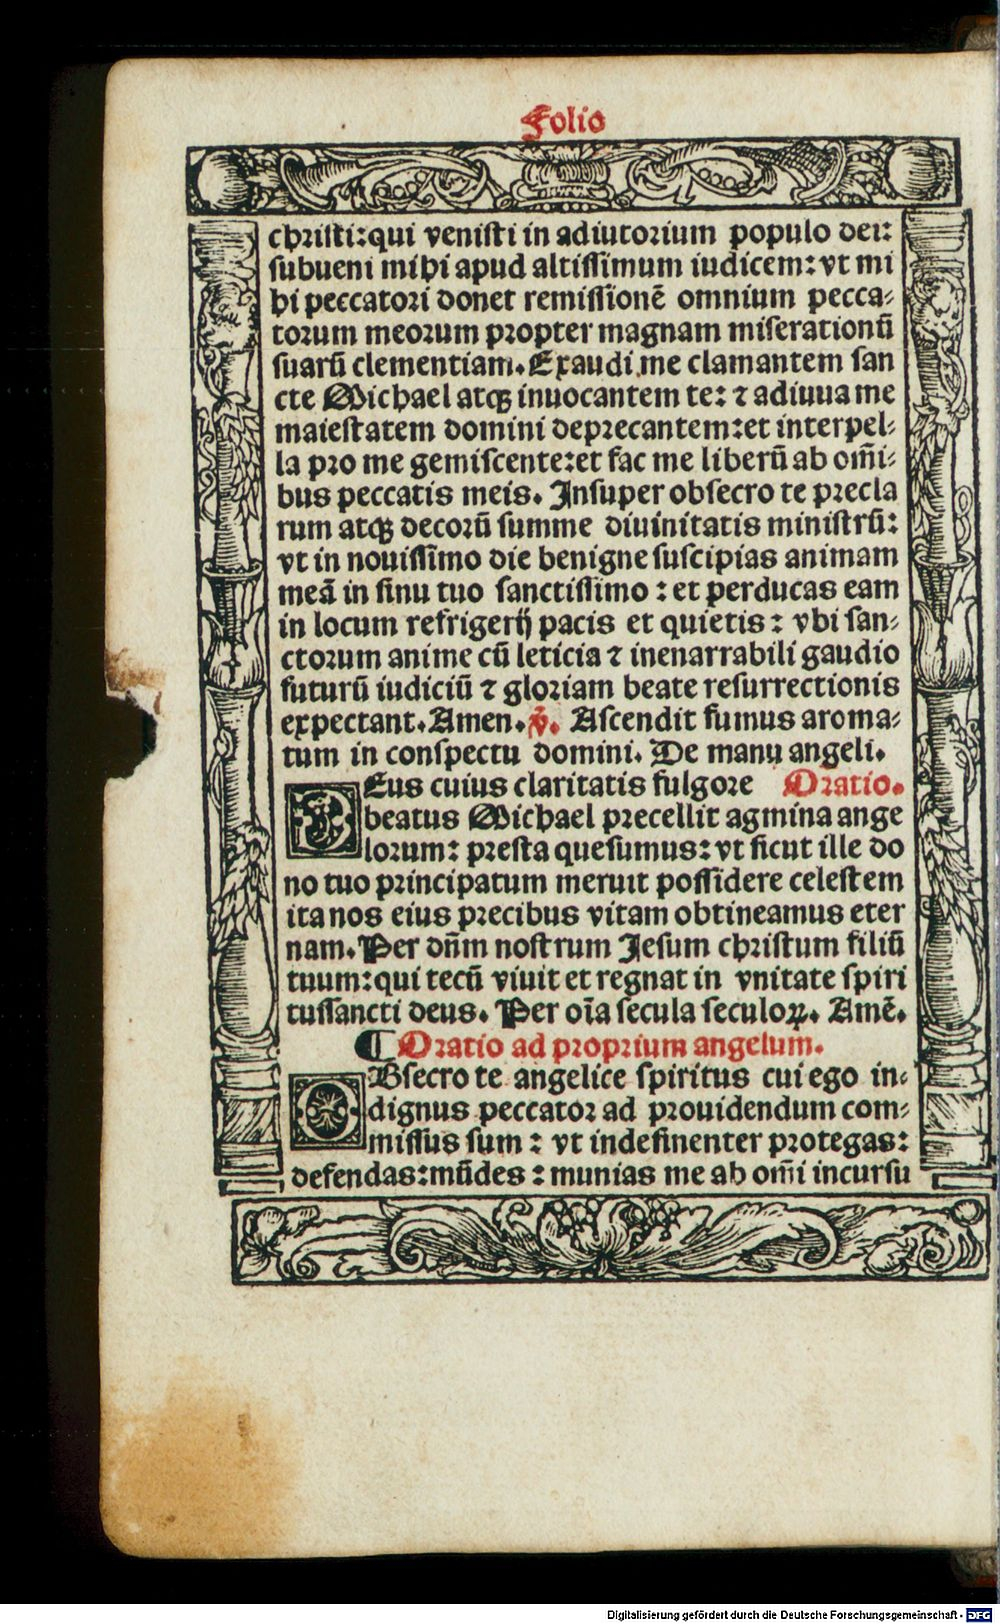 Folio
christi:qui venisti in adiutorium populo dei:
subueni mihi apud altissimum iudicem: vt mi
hi peccatori donet remissionē omnium pecca⸗
torum meorum propter magnam miserationū
suarū clementiam. Exaudi me clamantem san
cte Michael atqꝫ inuocantem te: ⁊ adiuua me
maiestatem domini deprecantem:et interpel⸗
la pro me gemiscente:et fac me liberū ab om̄i⸗
bus peccatis meis. Insuper obsecro te precla
rum atqꝫ decorū summe diuinitatis ministrū:
vt in nouissimo die benigne suscipias animam
meā in sinu tuo sanctissimo : et perducas eam
in locum refrigerij pacis et quietis : vbi san⸗
ctorum anime cū leticia ⁊ inenarrabili gaudio
futurū iudiciū ⁊ gloriam beate resurrectionis
expectant. Amen. v̄. Ascendit fumus aroma⸗
tum in conspectu domini. De manu angeli.
DEus cuius claritatis fulgore Oratio.
beatus Michael precellit agmina ange
lorum: presta quesumus: vt sicut ille do
no tuo principatum meruit possidere celestem
ita nos eius precibus vitam obtineamus eter
nam. Per dn̄m nostrum Jesum christum filiū
tuum:qui tecū viuit et regnat in vnitate spiri
tussancti deus. Per oīa secula seculoꝝ. Amē.
¶ Oratio ad proprium angelum.
OBsecro te angelice spiritus cui ego in⸗
dignus peccator ad prouidendum com⸗
missus sum : vt indesinenter protegas:
defendas:mūdes : munias me ab om̄i incursu
Digitalisierung gefördert durch die Deutsche Forschungsgemeinschaft - DFG